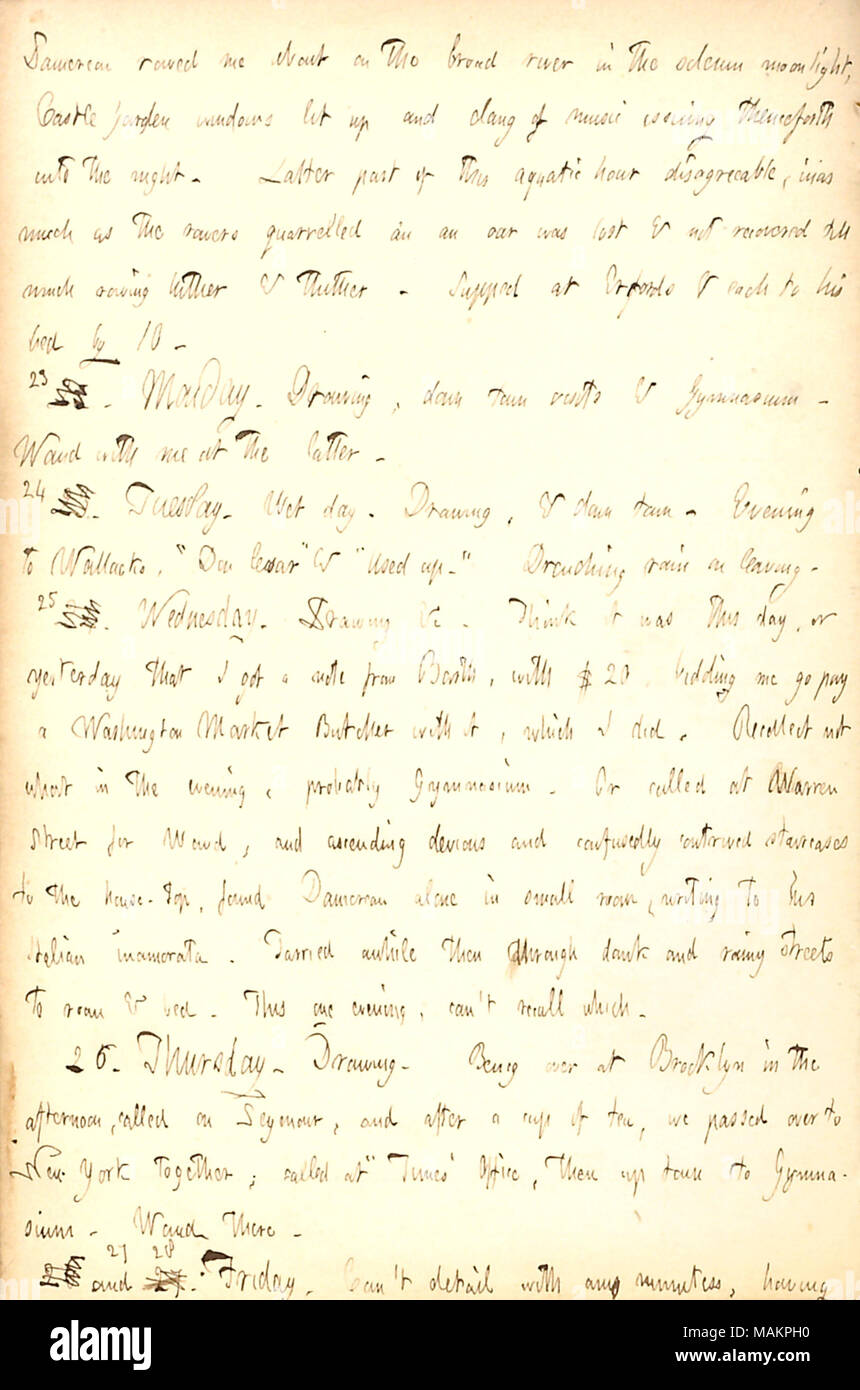 Damoreau rowed me about on the broad river in the solemn moonlight,
Castle Garden windows lit up and clang of music issuing thenceforth
into the night. Latter part of this aquatic hour disagreeable, inas
much as the rowers quarrelled an an oar was lost & not recovered till
much rowing hither & thither. Supped at Erfords & each to his
bed by 10.
23. Monday. Drawing, down town visits & Gymnasium.
Waud with me at the latter.
24. Tuesday. Wet day. Drawing, & down town. Evening
to Wallacks, "Don Cesar" & "Used up." Drenching rain on leaving.
25. Wednesday. Drawing &c. Think it was this day, or
yesterday that I got a note from Barth, with $20 bidding me go pay
a Washington Market Butcher with it, which I did. Recollect not
what in the evening, probably Gymnasium. Or called at Warren
Street for Waud, and ascending devious and confusedly contrived staircases
to the house-top, found Damoreau alone in small room, writing to his
Italian inamorata. Tarried awhile then through dank and rainy streets
to room & bed. This one evening, can't recall which.
26. Thursday. Drawing. Being over at Brooklyn in the
afternoon, called on Seymour, and after a cup of tea, we passed over to
New York together; called at "Times" Office, then up town to Gymna-
sium. Waud there.
27 and 28. Friday. Can't detail with any minutess, having
alamy
Image ID: MAKPH0
www.alamy.com